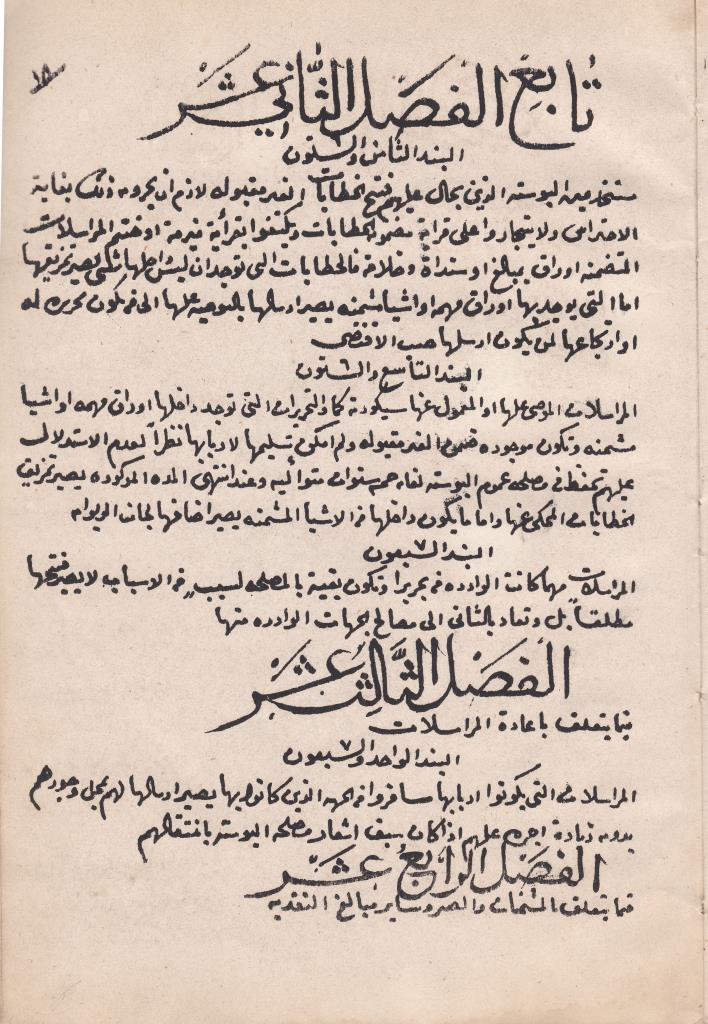 ١٨
تابع الفصل الثاني عشر
البند الثامن والستون
مستخدمين البوسته الذين يحال عليهم فتح الخطابات الغير مقبوله لازم ان يجروه ذلك بغاية
الاحتراس ولا يتجاروا على قراية مضمون الخطابات ويكتفوا بقرأية نمرة او ختم المراسلات
المتضمنه اوراق بمبالغ او سنداة وخلافه فالخطابات التي توجد ان ليس داخلها شئ يصير تمزيقها
اما التي يوجد بها اوراق مهمه او اشيا مثمنه يصير ارسالها بالتوصيه عليها الى من يكون محرره له
او ارجاعها لمن يكون ارسلها حسب الاقتضى
البند التاسع والستون
المراسلات الموصى عليها او المعمول عنها سيكورته كذا التحريرات التي توجد داخلها اوراق مهمه او اشيا
مثمنه وتكون موجوده ضمن الغير مقبوله ولم امكن تسليمها لاربابها نظراً لعدم الاستدلال
عليهم تحفظ في مصلحة عموم البوسته لغاية خمس سنوات متواليه وعند انتهى المده المذكوره يصير تمزيق
الخطابات المحكي عنها واما ما يكون داخلها من الاشيا المثمنه يصير اضافتها لجانب الديوان
البند السبعون
المراسلات مهما كانت الوارده من بحر برا وتكون بقية بالمصلحه لسبب من الاسباب لا يصير فتحها
مطلقاً بل وتعاد بالثاني الى مصالح الجهات الوارده منها
الفصل الثالث عشر
فيما يتعلق باعادة المراسلات
البند الواحد والسبعون
المراسلات التي يكونوا اربابها سافروا من الجهه الذين كانوا بها يصير ارسالها لهم بمحل وجودهم
بدون زيادة اجره عليهم اذا كان سبق اشعار مصلحة البوسته بانتقالهم
الفصل الرابع عشر
فيما يتعلق المثمنات والصره وساير مبالغ النقديه